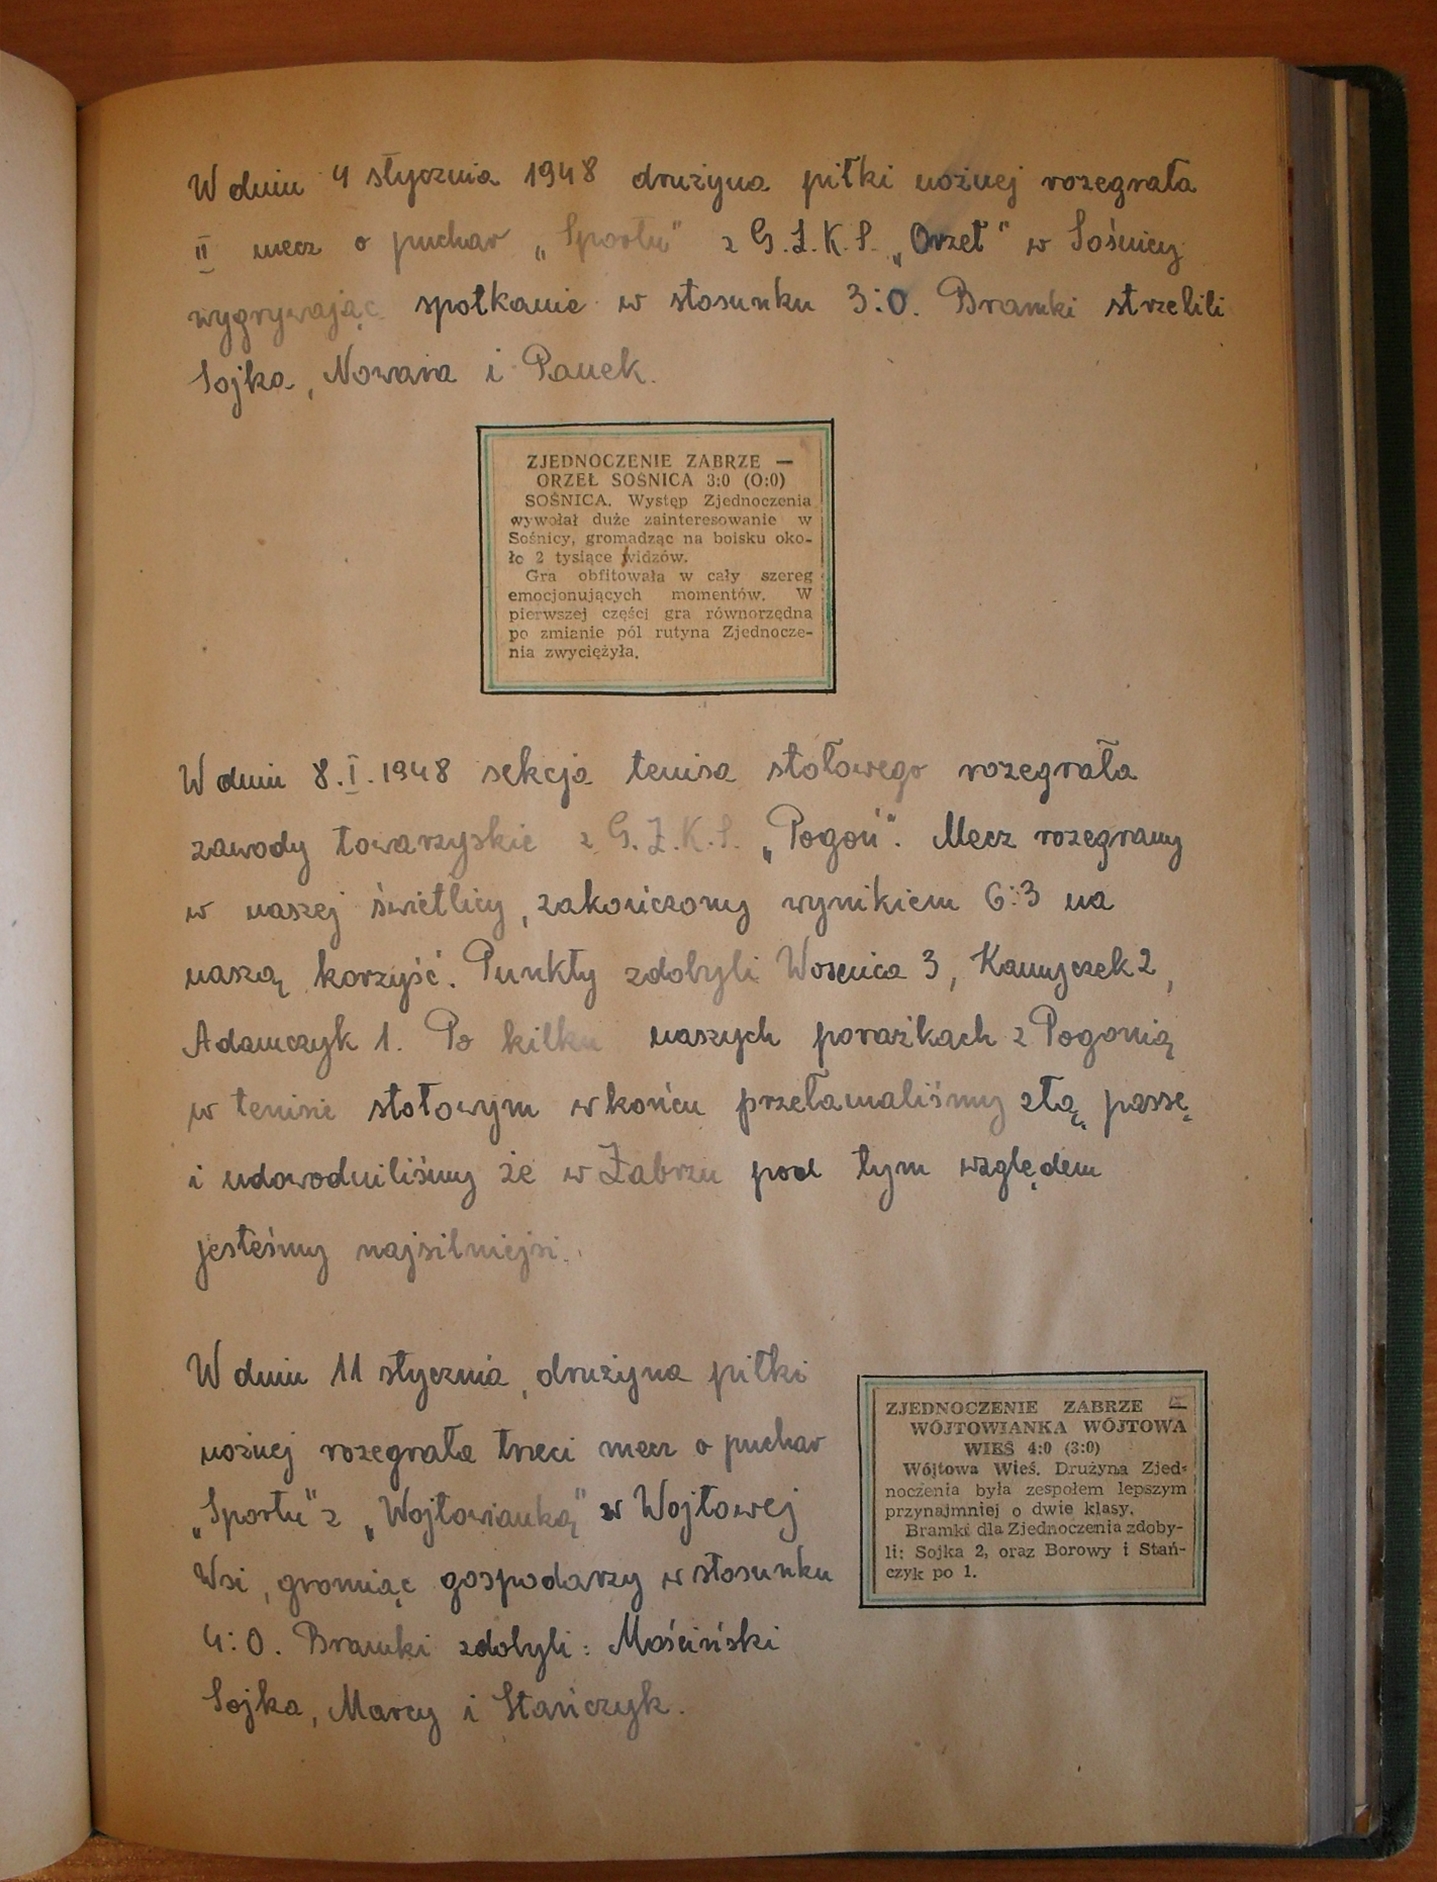 W dniu 4 stycznia 1948 drużyna piłki nożnej rozegrała
II mecz o puchar „Sportu" z G.Z.K.S. „Orzeł" w Sośnicy
wygrywając spotkanie w stosunku 3:0. Bramki strzelili
Sojka, Nowara i Panek.
ZJEDNOCZENIE ZABRZE —
ORZEŁ SOŚNICA 3:0 (0:0)
SOŚNICA. Występ Zjednoczenia
wywołał duże zainteresowanie w
Sośnicy, gromadząc na boisku oko-
ło 2 tysiące widzów.
Gra obfitowała w cały szereg
emocjonujących momentów. W
pierwszej części gra równorzędna
po zmianie pól rutyna Zjednocze-
nia zwyciężyła.
W dniu 8.I.1948 sekcja tenisa stołowego rozegrała
zawody towarzyskie z G.Z.K.S. „Pogoń". Mecz rozegrany
w naszej świetlicy, zakończony wynikiem 6:3 na
naszą korzyść. Punkty zdobyli Wosnica 3, Kamyczek 2,
Adamczyk 1. Po kilku naszych porażkach z Pogonią
w tenisie stołowym wkońcu przełamaliśmy złą passę
i udowodniliśmy że w Zabrzu pod tym względem
jesteśmy najsilniejsi.
W dniu 11 stycznia, drużyna piłki
nożnej rozegrała trzeci mecz o puchar
„Sportu" z „Wojtowianką" w Wojtowej
Wsi, gromiąc gospodarzy w stosunku
4:0. Bramki zdobyli: Mościński
Sojka, Marcy i Stańczyk.
ZJEDNOCZENIE ZABRZE —
WÓJTOWIANKA WÓJTOWA
WIEŚ 4:0 (3:0)
Wójtowa Wieś. Drużyna Zjed-
noczenia była zespołem lepszym
przynajmniej o dwie klasy.
Bramki dla Zjednoczenia zdoby-
li: Sojka 2, oraz Borowy i Stań-
czyk po 1.